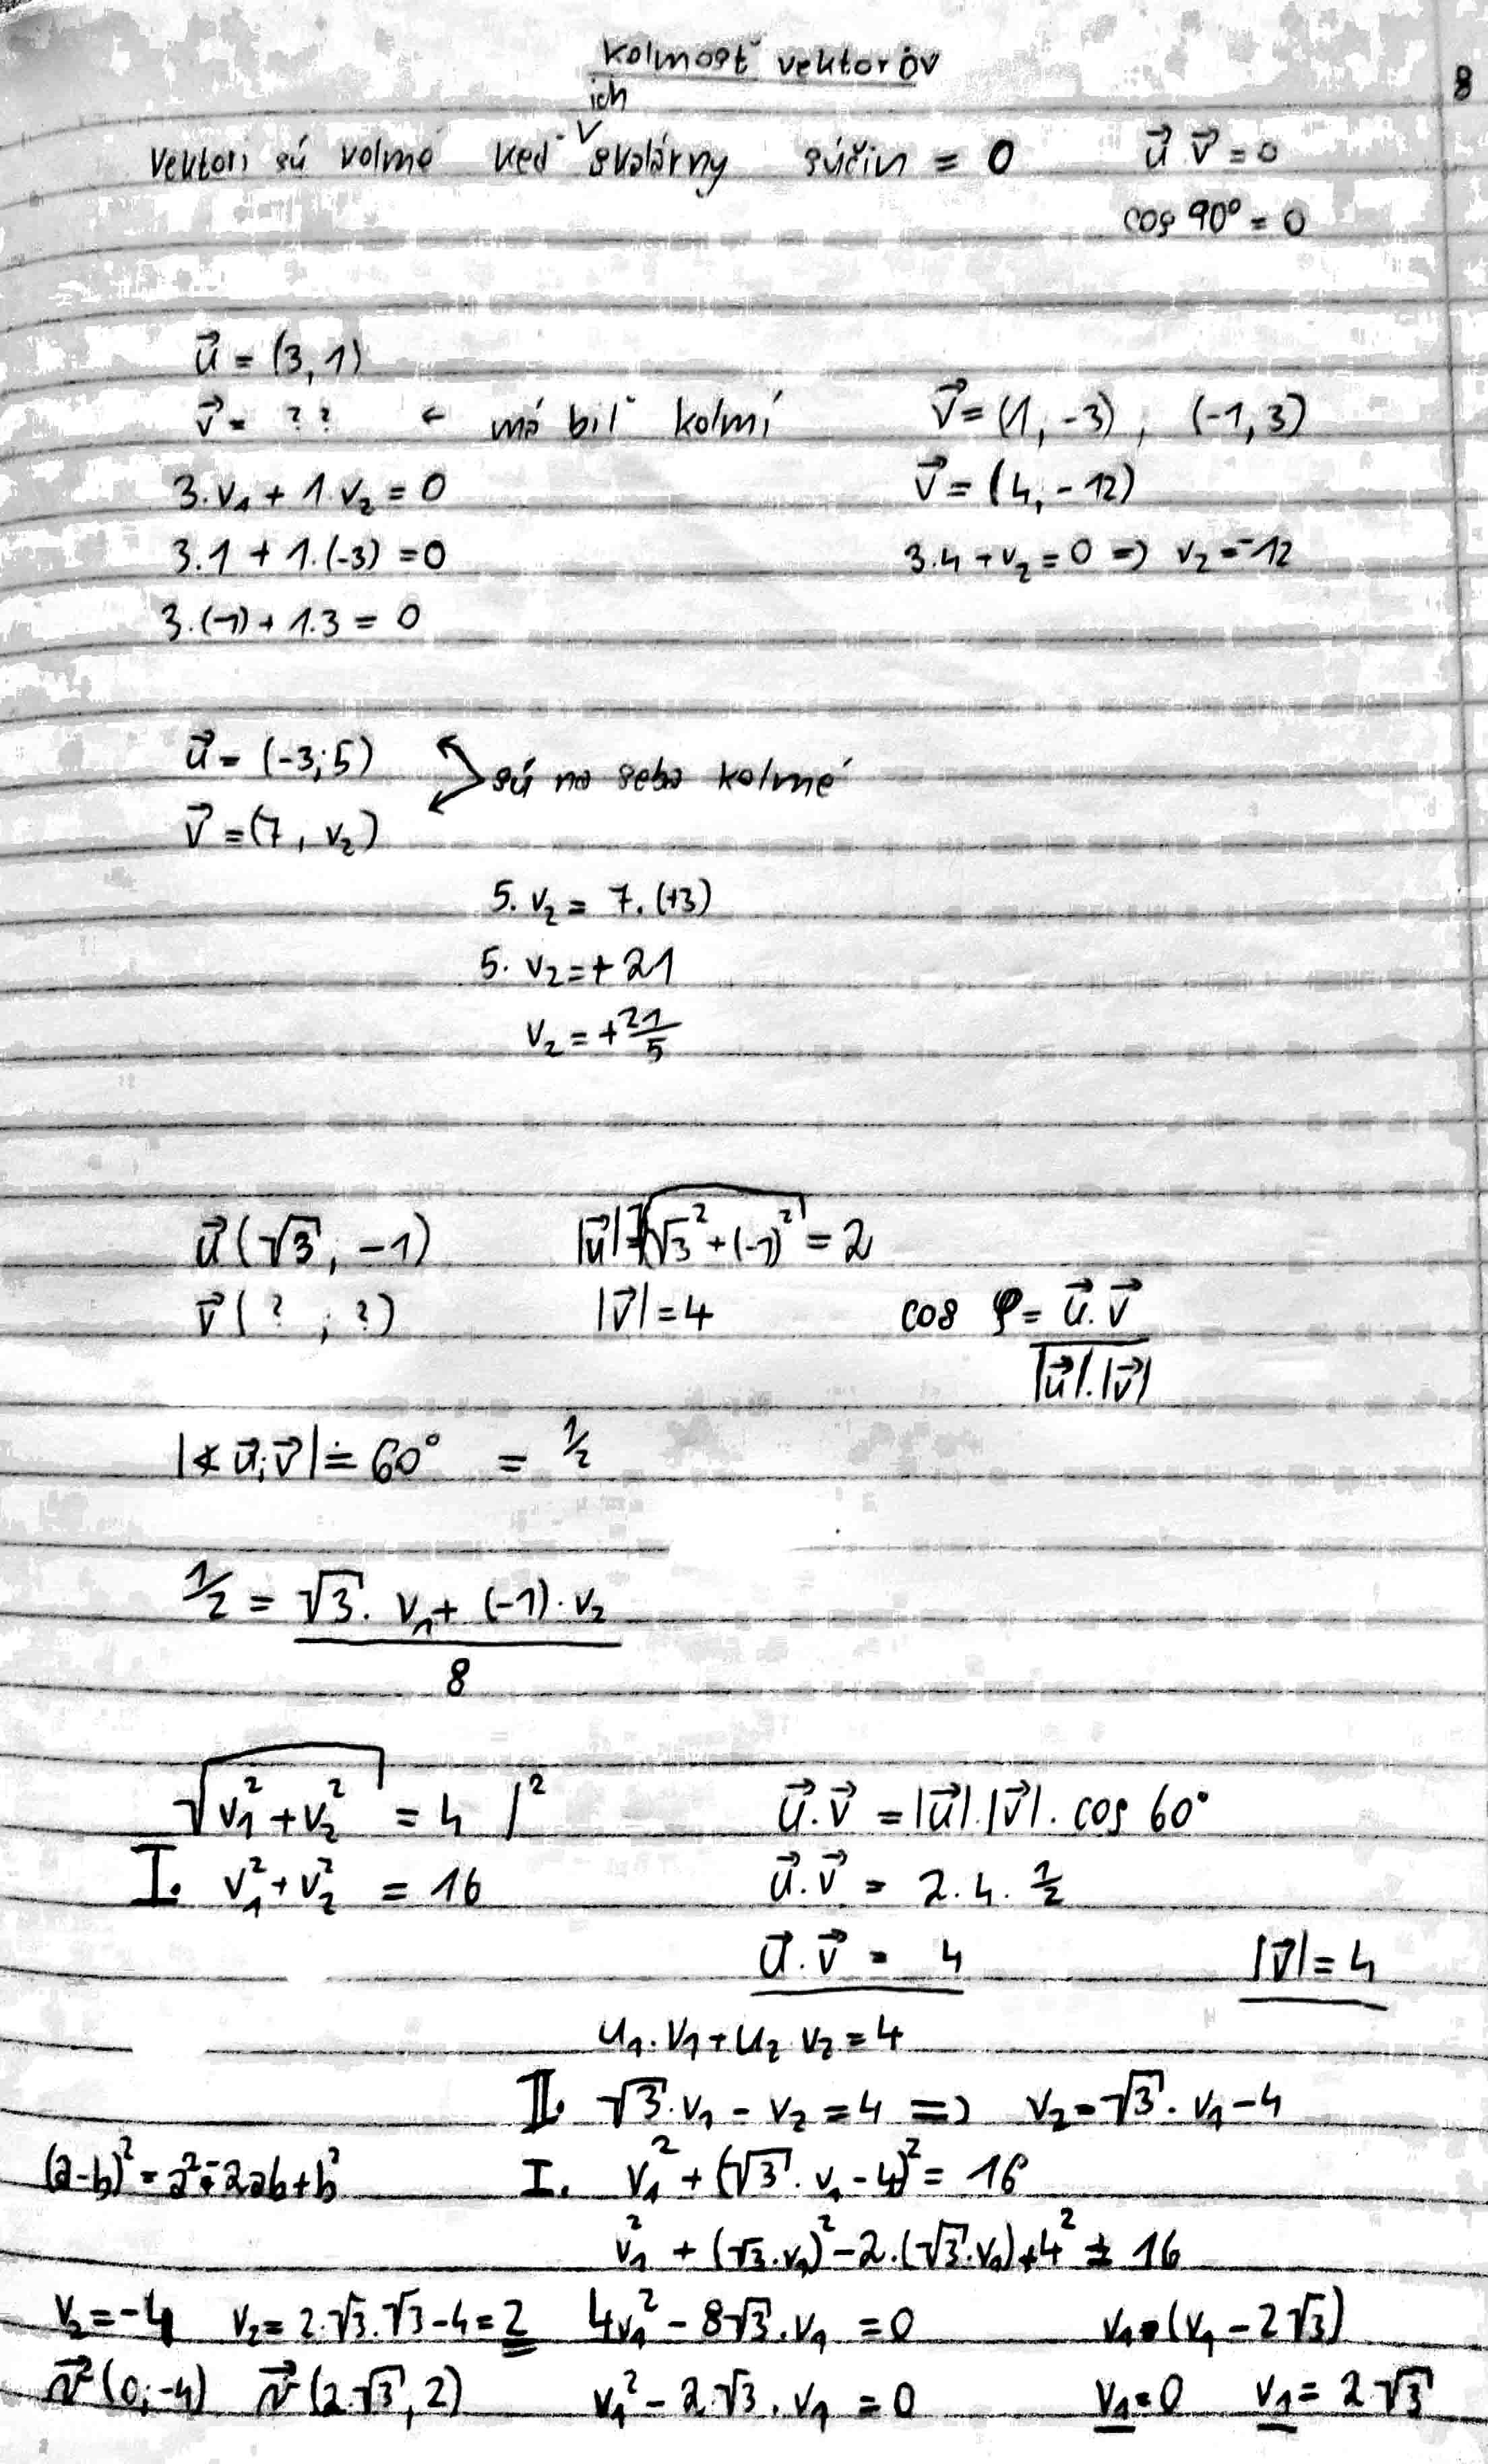 Kolmosť vektorov
8
ich
Vektori sú kolmé keď V skalárny súčin = 0
u⃗.v⃗ = 0
cos 90° = 0
u⃗ = (3, 1)
v⃗ = ? ? ← má biť kolmí
v⃗ = (1, -3), (-1, 3)
3.v₁ + 1.v₂ = 0
v⃗ = (4, -12)
3.1 + 1.(-3) = 0
3.4 + v₂ = 0 => v₂ = -12
3.(-1) + 1.3 = 0
u⃗ = (-3; 5)
sú na seba kolmé
v⃗ = (7, v₂)
5. v₂ = 7. (+3)
5. v₂ = + 21
v₂ = + 21/5
u⃗ (√3; -1) |u⃗| = √(√3² + (-1)²) = 2
v⃗ ( ? ; ?) |v⃗| = 4 cos φ = u⃗.v⃗ / |u⃗|.|v⃗|
|∢ u⃗;v⃗| ≐ 60° = 1/2
1/2 = √3. v₁ + (-1). v₂ / 8
√(v₁² + v₂²) = 4 |²
u⃗.v⃗ = |u⃗|.|v⃗|. cos 60°
I. v₁² + v₂² = 16
u⃗.v⃗ = 2.4. 1/2
u⃗.v⃗ = 4 |v⃗| = 4
u₁.v₁ + u₂ v₂ = 4
II. √3.v₁ - v₂ = 4 => v₂ = √3. v₁ - 4
(a-b)² = a² - 2ab + b²
I. v₁² + (√3. v₁ - 4)² = 16
v₁² + (√3.v₁)² - 2.(√3.v₁) + 4² = 16
v₂ = -4 v₂ = 2.√3.√3 - 4 = 2 4v₁² - 8√3.v₁ = 0 v₁ • (v₁ - 2√3)
v⃗ (0; -4) v⃗ (2.√3, 2) v₁² - 2.√3. v₁ = 0 v₁ = 0 v₁ = 2√3